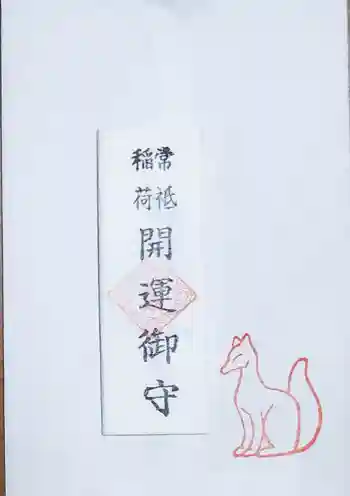 常祗
稲荷
開運御守